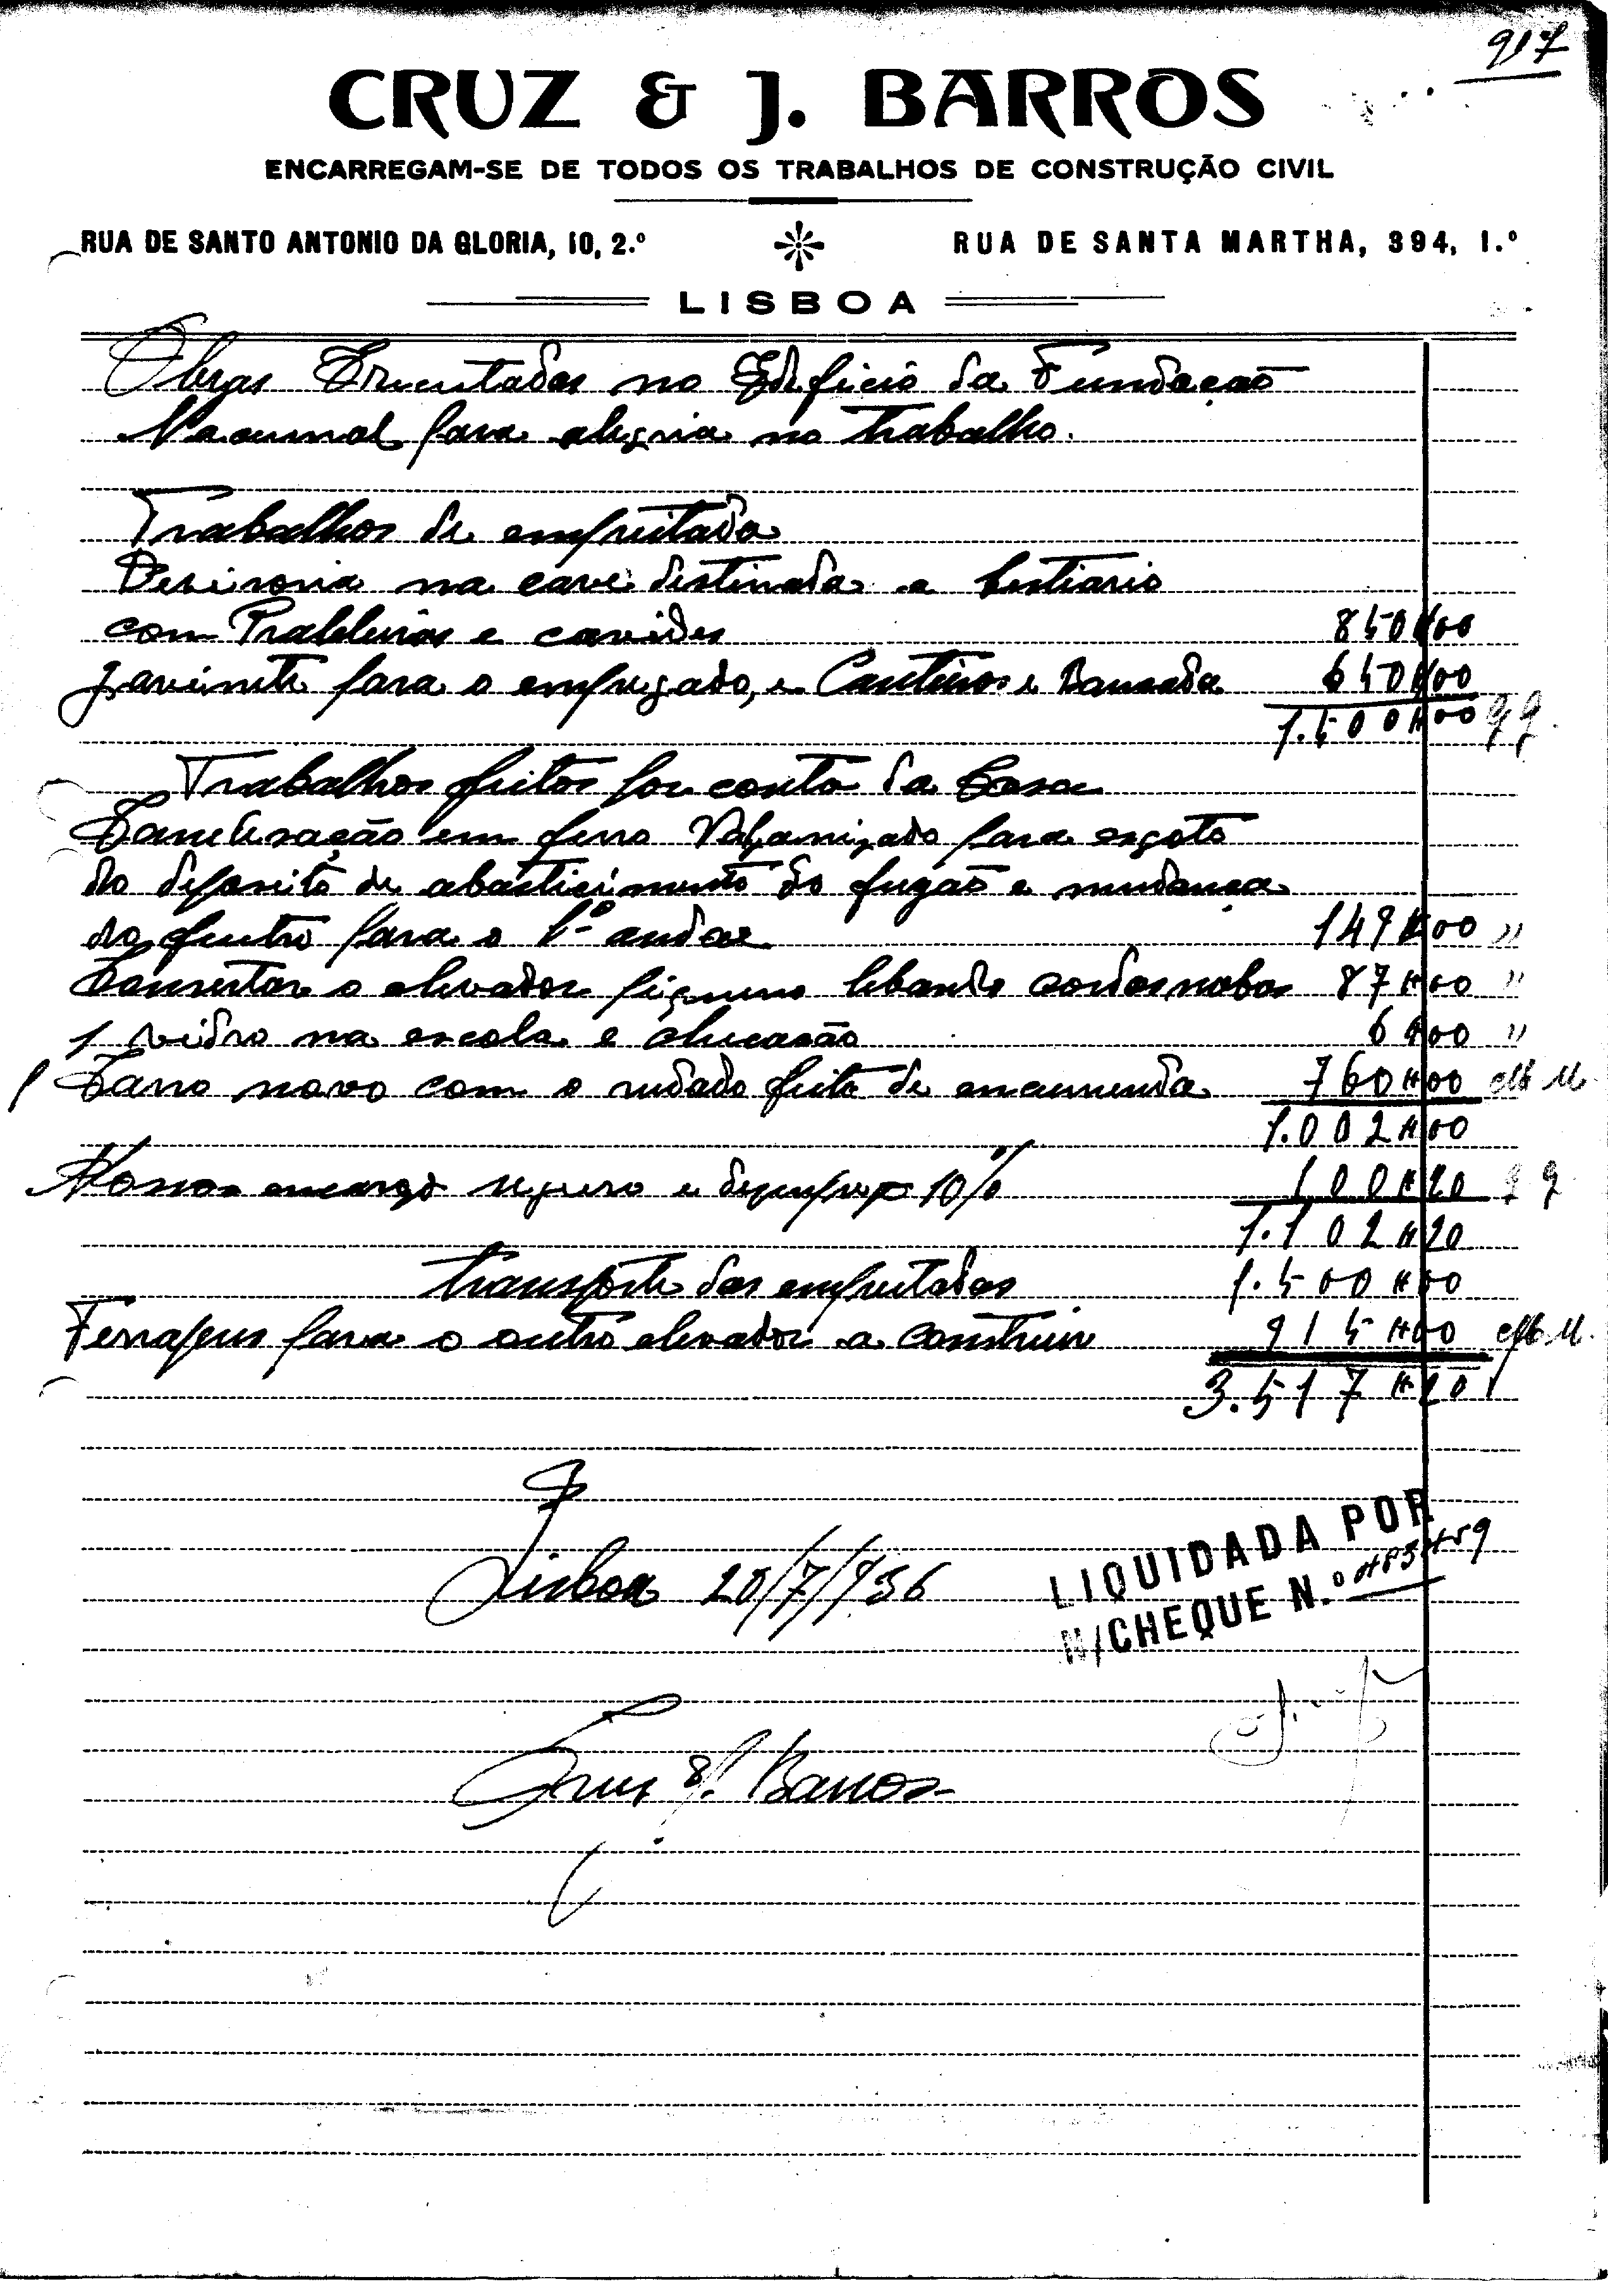 917
CRUZ & J. BARROS
ENCARREGAM-SE DE TODOS OS TRABALHOS DE CONSTRUÇÃO CIVIL
RUA DE SANTO ANTONIO DA GLORIA, 10, 2.º RUA DE SANTA MARTHA, 394, 1.º
LISBOA
Obras Executadas no Edificio da Fundação
Nacional para alegria no trabalho.
Trabalhos de empreitada
Devisoria na cave destinada a bestiario
com Prateleiras e cavides 850$00
gavinete para o empregado, e Canteiros e Bancada 650$00
1.500$00
Trabalhos feitos por conta da Casa
Canelisação em ferro Valganizado para esgoto
do deposito de abastecimento do fugão e mudança
do filtro para o 1º andar 149$00 "
Consertar o elevador piqueno lebando cordas nobas 87$00 "
1 vidro na escola e colucação 6$00 "
1 Carro novo com o rudado feito de encumenda 760$00
1.002$00
Nosso encargo seguro e dezempreg 10% 100$20
1.102$20
transporte das empreitadas 1.500$00
Ferragens para o outro elevador a construir 915$00
3.517$20
Lisboa 20/7/936
LIQUIDADA POR
N/CHEQUE N.º
Cruz & J. Barros